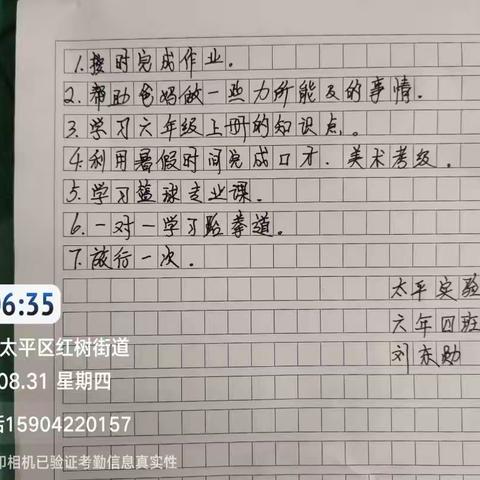 1.按时完成作业。
2.帮助爸妈做一些力所能及的事情.
3.学习六年级上册的知识点。
4.利用暑假时间完成口才、美术考级.
5.学习篮球专业课.
6.一对一学习跆拳道。
7.旅行一次.
太平实验
六年四班
刘东勋
06:35
太平区红树街道
08.31 星期四
15904220157
印相机已验证考勤信息真实性